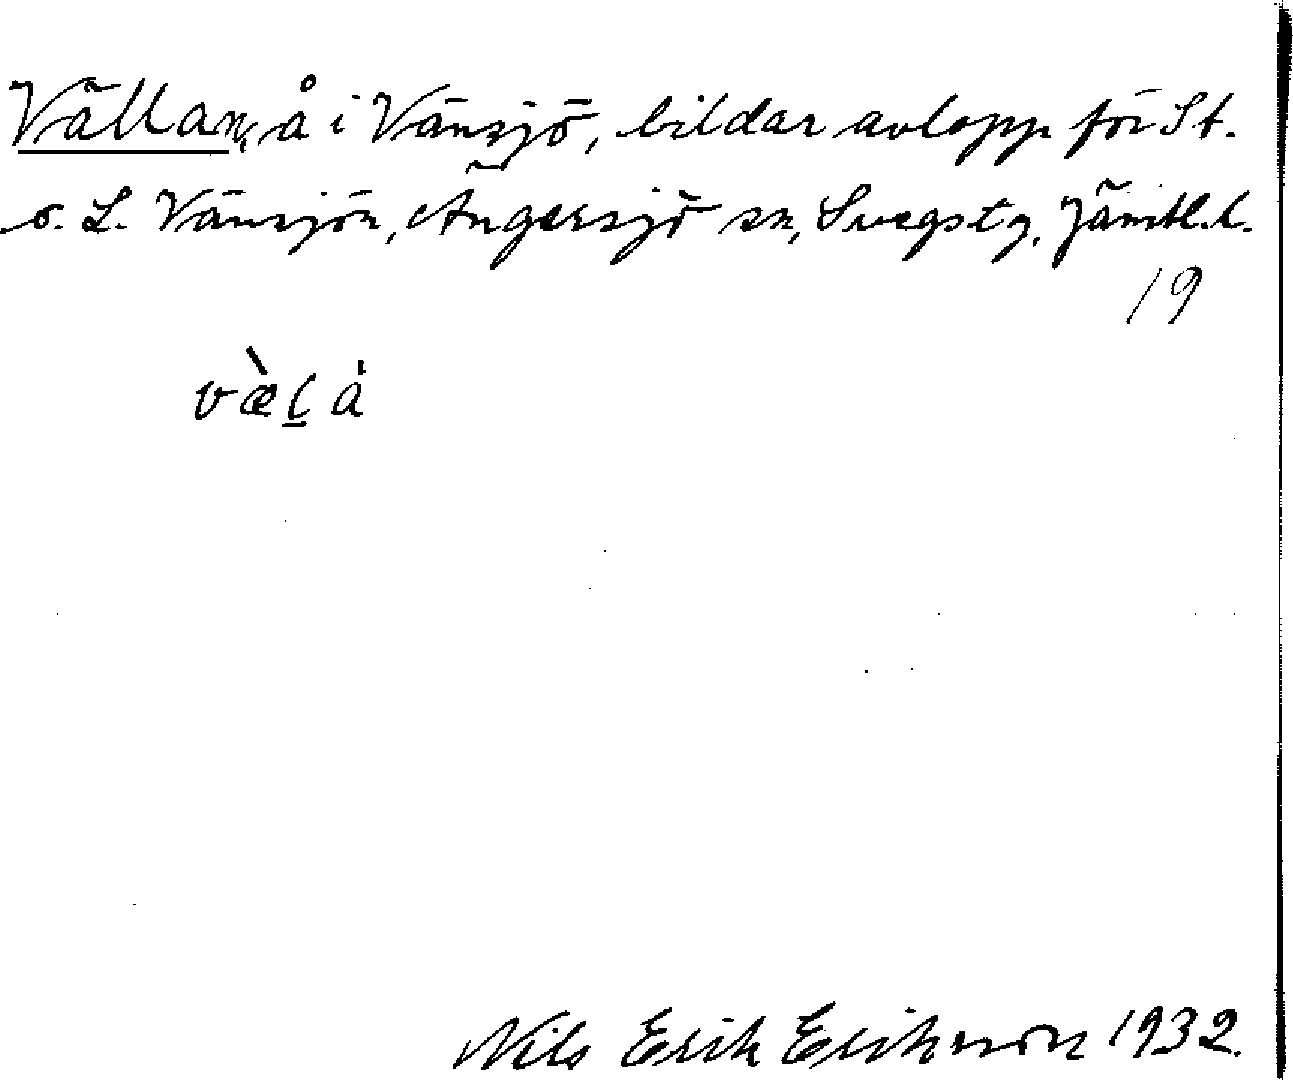 Vällan, å i Vänsjö, bildar avlopp för St.
o. L. Vänsjön, Ängersjö sn, Svegs tg, Jämtl. l.
19
væ̀l̲ȧ
Nils Erik Eriksson 1932.